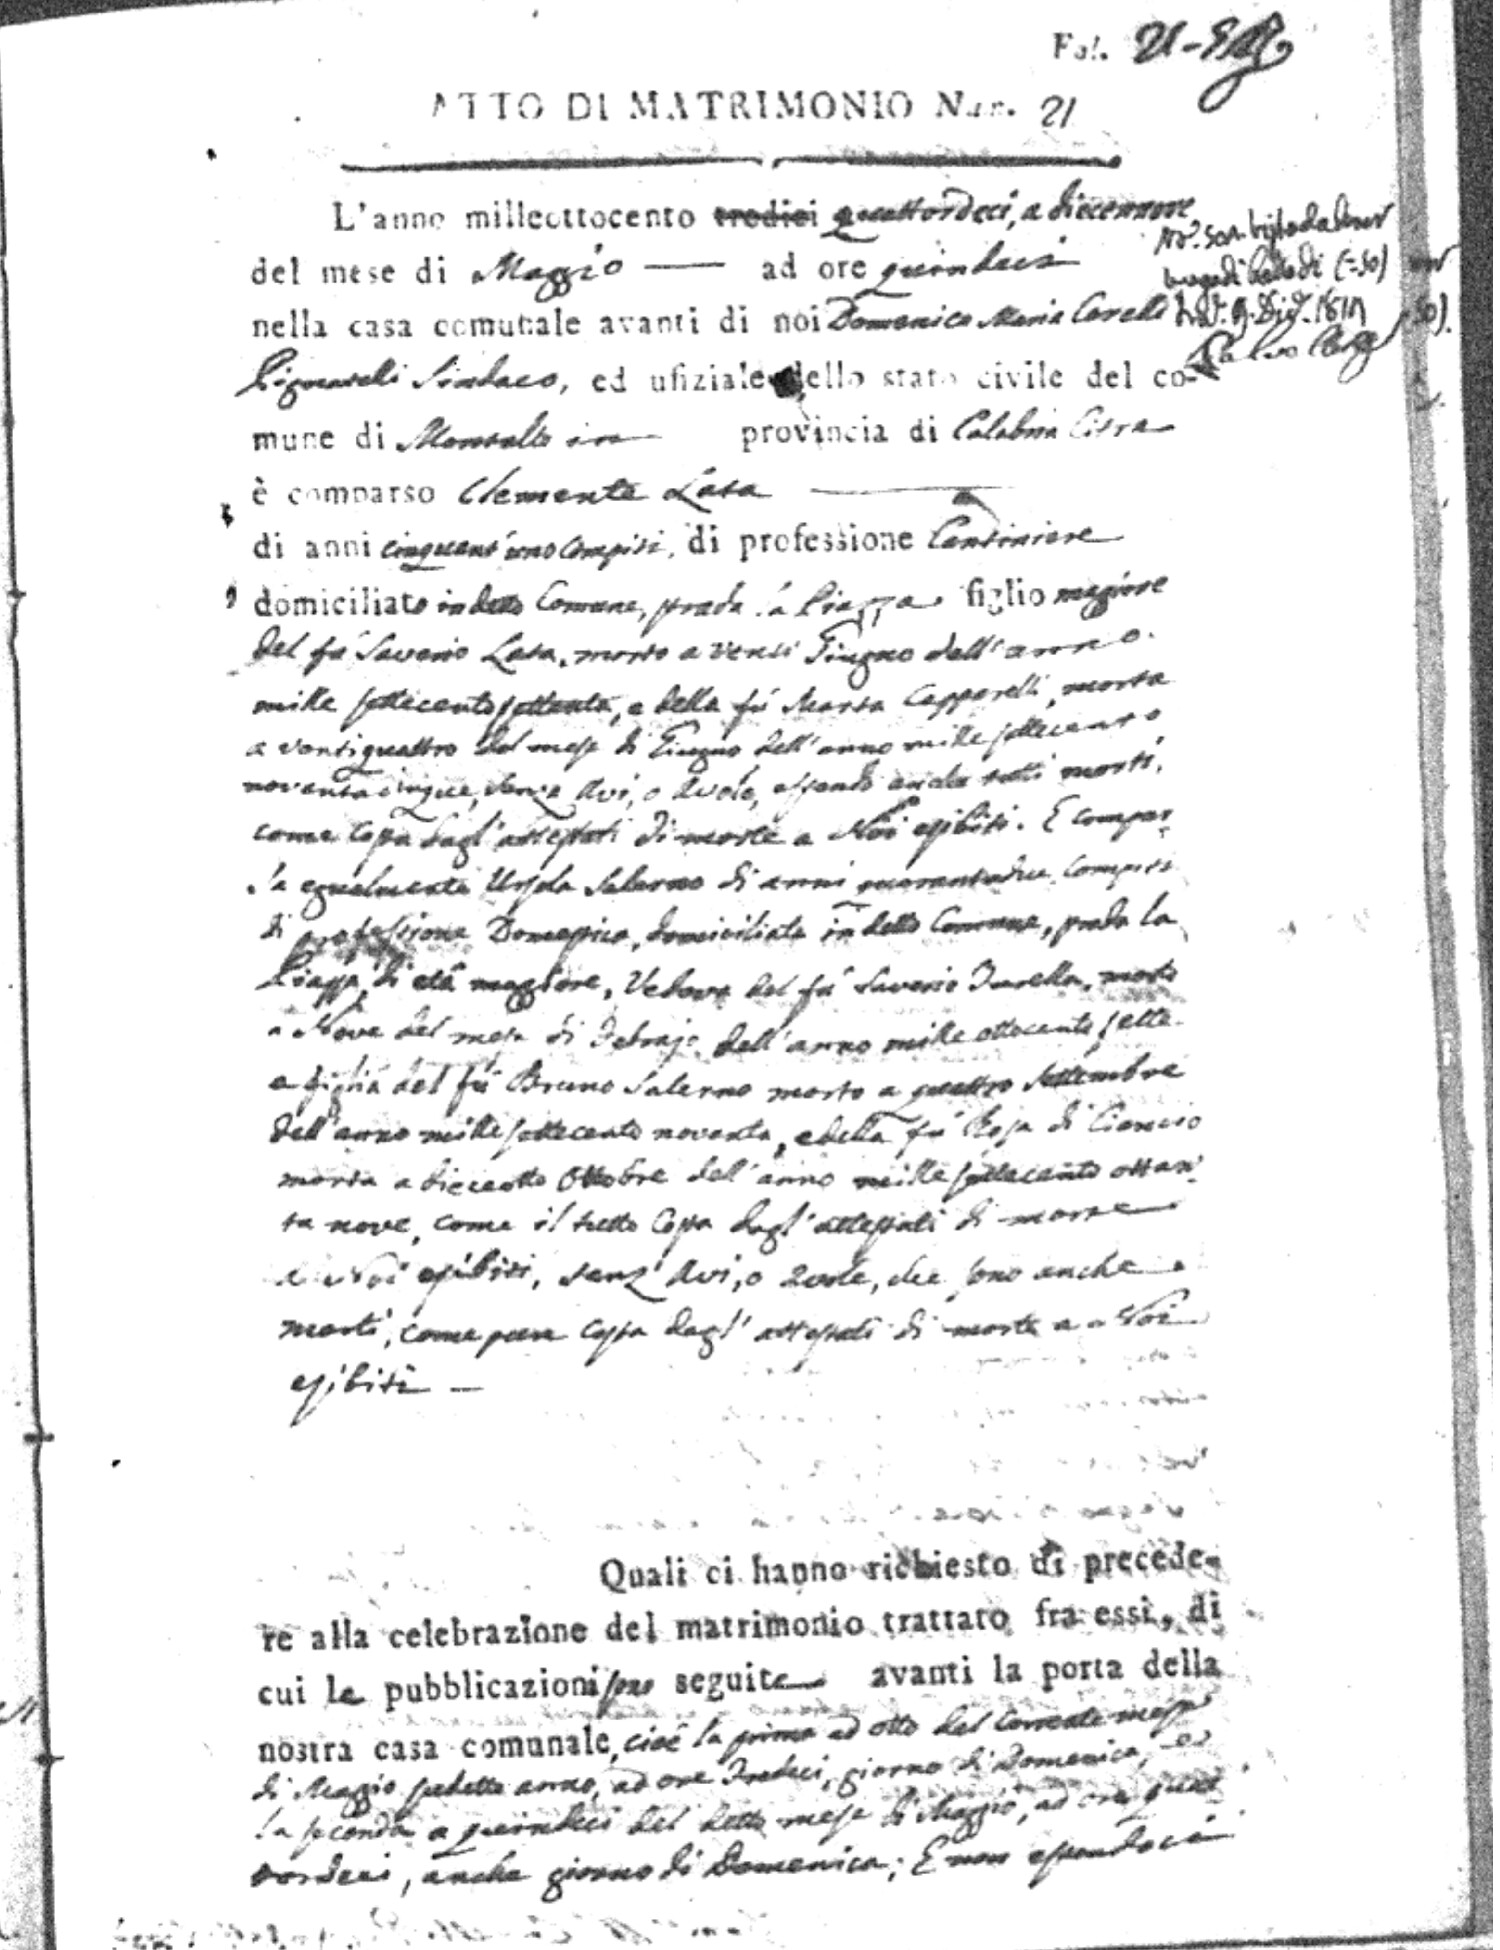 Fol. 21-
ATTO DI MATRIMONIO Num. 21
L'anno milleottocento tredici quattordeci, a diecennove
del mese di Maggio — ad ore quindeci
nella casa comunale avanti di noi Domenico Maria Carelli
Pignatelli Sindaco, ed ufiziale dello stato civile del co-
mune di Montalto in provincia di Calabria Citra
è comparso Clemente Lata
di anni cinquant'uno compiti, di professione Cantiniere
domiciliato in detto Comune, strada la Piazza figlio maggiore
del fù Saverio Lata, morto a venti Giugno dell'anno
mille settecento settanta, e della fù Marta Capparelli, morta
a ventiquattro del mese di Giugno dell'anno mille settecento
novantacinque, senza Avi, o Avole, essendo anche tutti morti,
come costa dagl'attestati di morte a Noi esibiti. E compar-
sa egualmente Ursola Salerno di anni quarantadue compiti
di professione Domestica, domiciliata in detto Comune, strada la
Piazza, di età maggiore, Vedova del fù Saverio Turella, morto
a Nove del mese di Febrajo dell'anno mille ottocento sette
e figlia del fù Bruno Salerno morto a quattro Settembre
dell'anno mille settecento novanta, e della fù Rosa di Ciancio
morta a dieceotto Ottobre dell'anno mille settecento ottan-
ta nove, come il tutto costa dagl'attestati di morte
a Noi esibiti, senz'Avi, o Avole, che sono anche
morti, come pure costa dagl'attestati di morte a Noi
esibiti —
Quali ci hanno richiesto di precede-
re alla celebrazione del matrimonio trattato fra essi, di
cui le pubblicazioni sono seguite avanti la porta della
nostra casa comunale, cioè la prima ad otto del corrente mese
di Maggio sudetto anno, ad ore Tredeci, giorno di Domenica, ed
la seconda a quindeci del detto mese di Maggio, ad ore quat-
tordeci, anche giorno di Domenica; E non essendoci